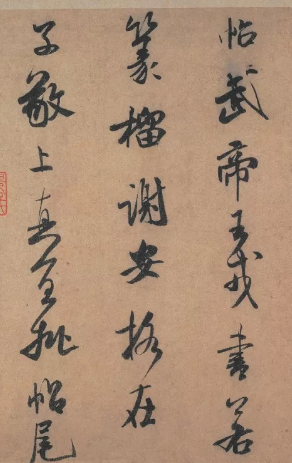 帖武帝王戎书若
篆籀谢安格在
子敬上真宜批帖尾